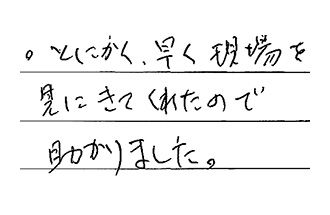 。とにかく、早く現場を
見にきてくれたので
助かりました。